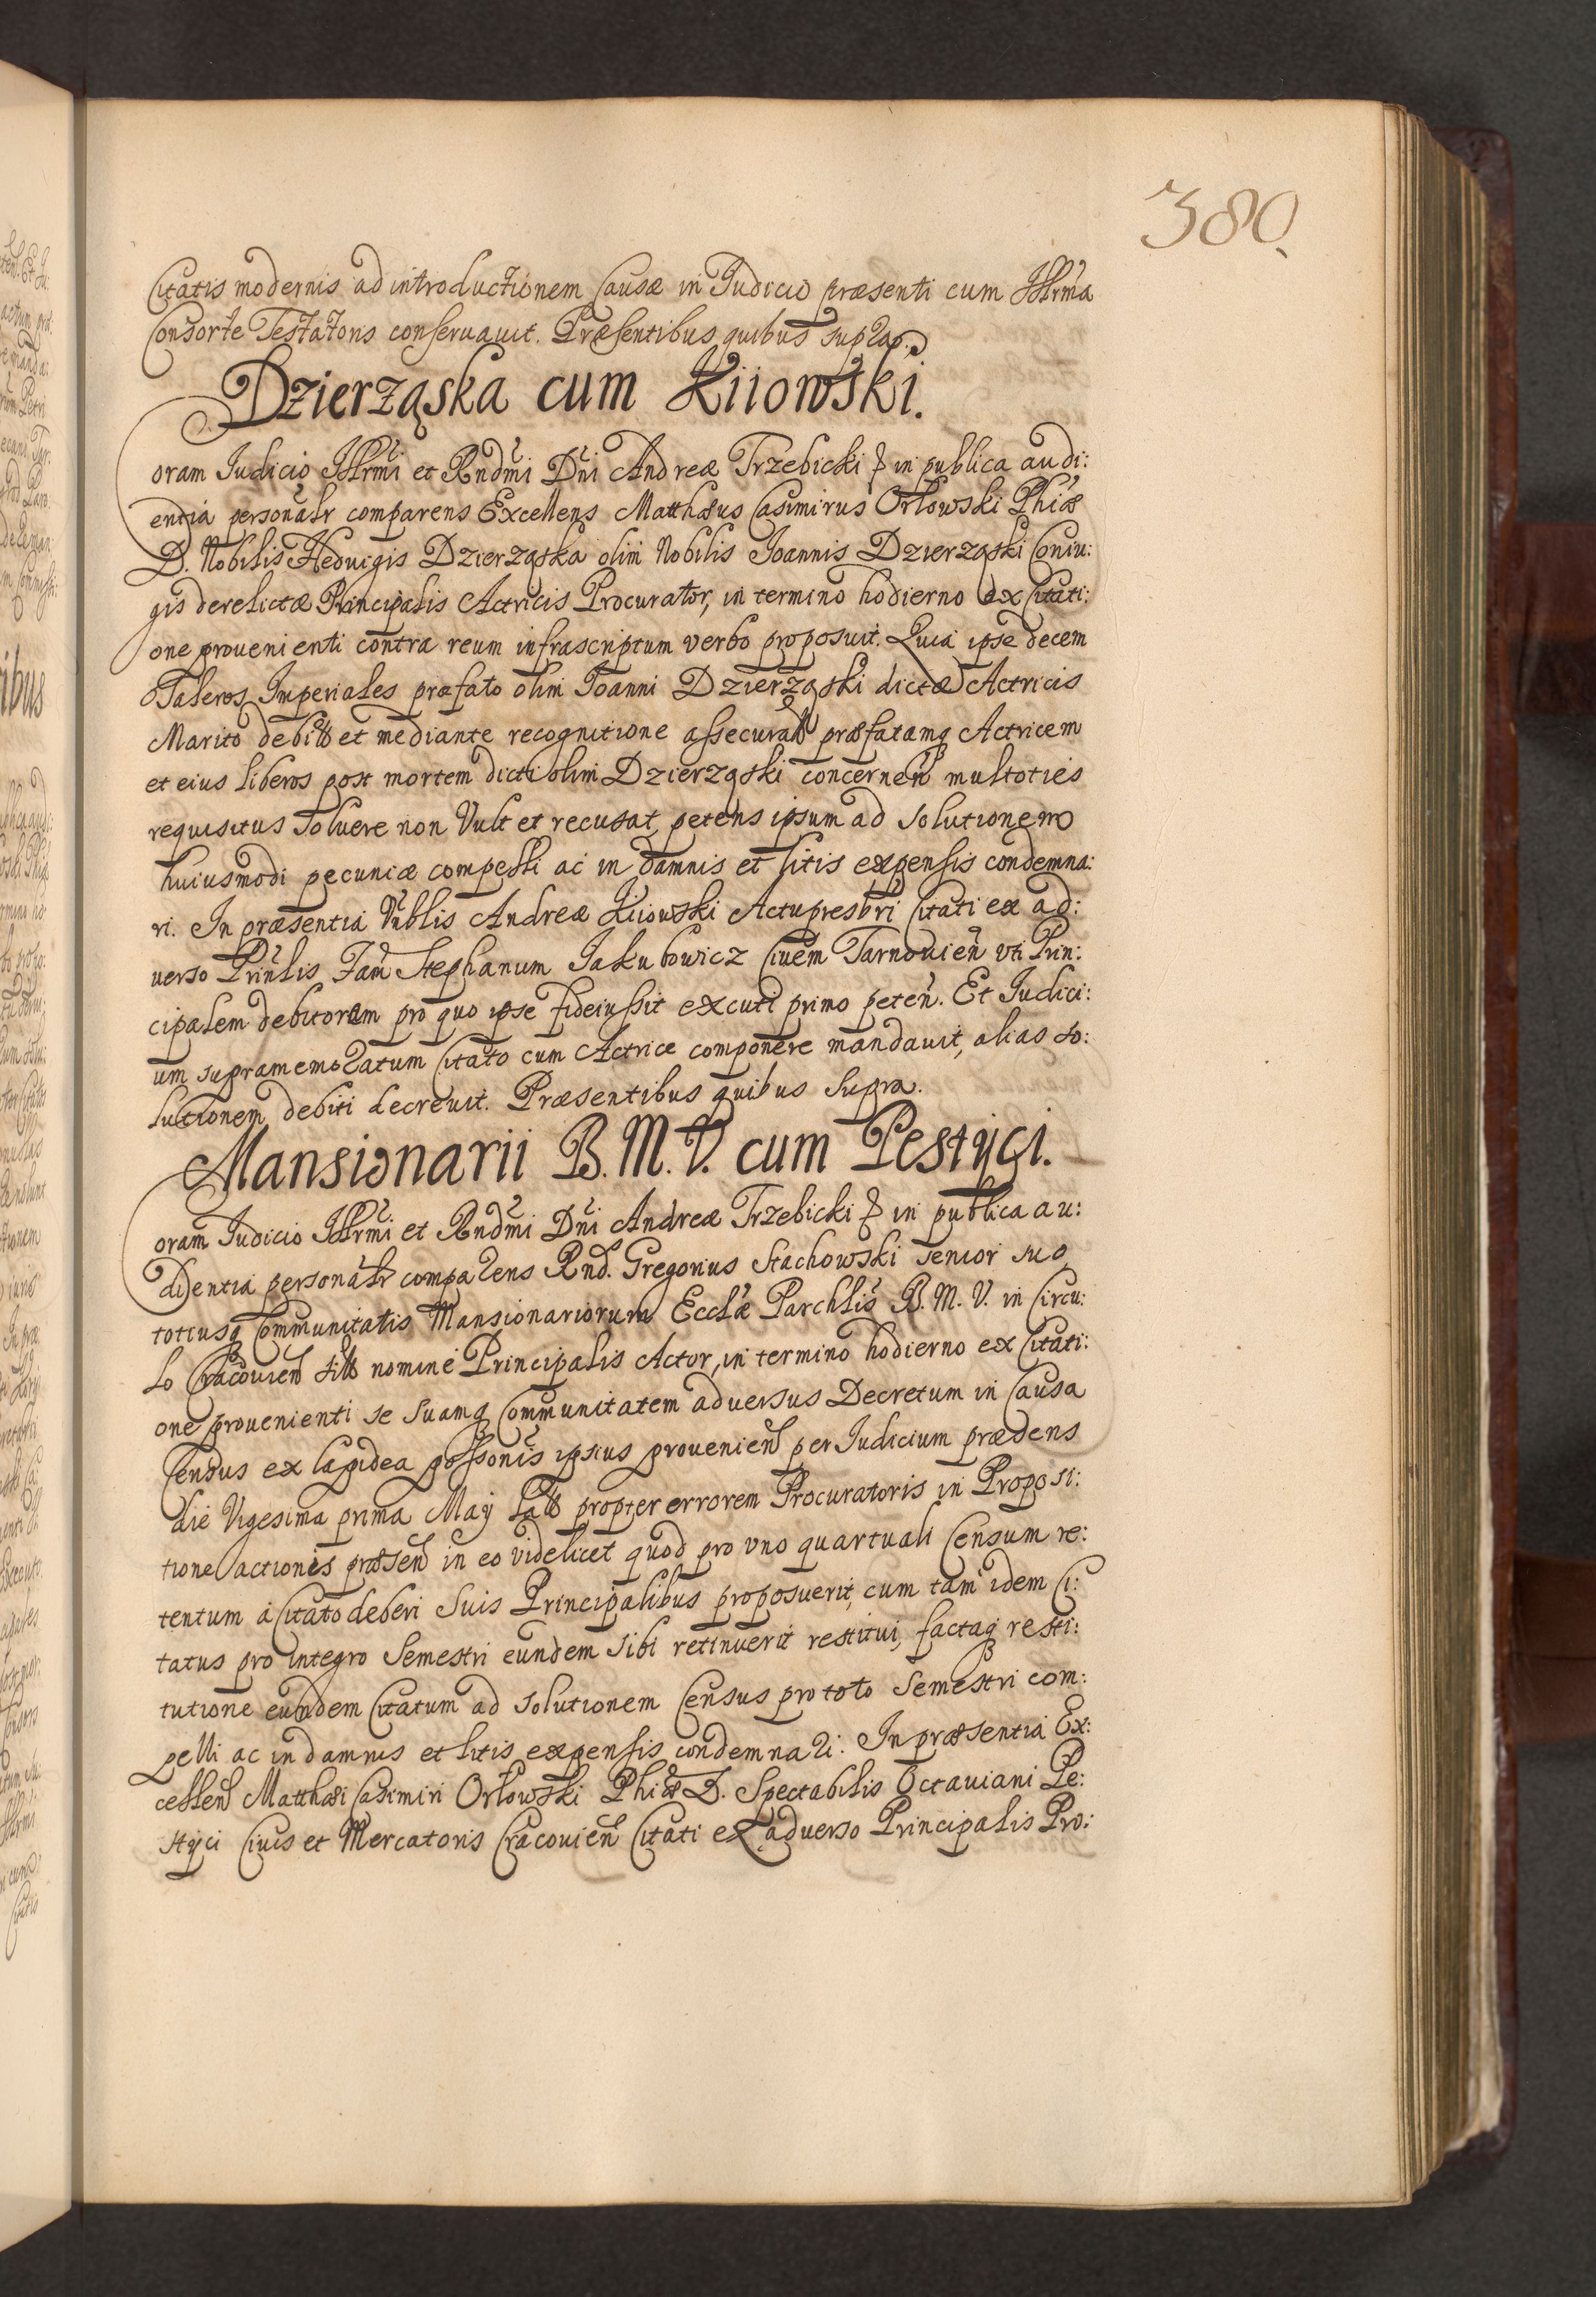 380.
Citatis modernis ad introductionem Causæ in Iudicio præsenti cum Illrma
Consorte Testatoris conseruauit. Præsentibus quibus supra.
Dzierząska cum Kiiowski.
Coram Iudicio Illrmi et Rndmi Dni Andreæ Trzebicki in publica audi:
entia personalr comparens Excellens Matthæus Casimirus Orłowski Phiæ
D. Nobilis Heduigis Dzierząska olim Nobilis Ioannis Dzierząski Coniu:
gis derelictæ Principalis Actricis Procurator, in termino hodierno ex Citati:
one prouenienti contra reum infrascriptum verbo proposuit. Quia ipse decem
Taleros Imperiales præfato olim Ioanni Dzierząski dictæ Actricis
Marito debitt et mediante recognitione assecuratt præfatamq Actricem
et eius liberos post mortem dicti olim Dzierząski concernen multoties
requisitus soluere non Vult et recusat, petens ipsum ad solutionem
huiusmodi pecuniæ compelli ac in damnis et litis expensis condemna:
ri. In præsentia Vnblis Andreæ Kiiowski Actupresbri Citati ex ad:
verso Prinlis Fam Stephanum Iakubowicz Ciuem Tarnouien vti Prin:
cipalem debitorem pro quo ipse fideiussit excuti primo peten. Et Iudici:
um supramemoratum Citato cum Actrice componere mandauit, alias so:
lutionem debiti decreuit. Præsentibus quibus supra.
Mansionarii B. M. V. cum Pestÿci.
Coram Iudicio Illrmi et Rndmi Dni Andreæ Trzebicki in publica au:
dientia personalr comparens Rnd. Gregorius Stachowski senior suo
totiusq Communitatis Mansionariorum Ecclæ Parchlis B. M. V. in Circu:
lo Cracouien sitt nomine Principalis Actor, in termino hodierno ex Citati:
one prouenienti se suamq Communitatem aduersus Decretum in Causa
Census ex lapidea possonis ipsius prouenien per Iudicium prædens
die Vigesima prima Maÿ latt propter errorem Procuratoris in Proposi:
tione actionis præsen in eo videlicet quod pro vno quartuali Censum re:
tentum à Citato deberi Suis Principalibus proposuerit, cum tam idem Ci:
tatus pro integro Semestri eundem sibi retinuerit restitui, factaq resti:
tutione eundem Citatum ad solutionem Census pro toto Semestri com:
pelli ac in damnis et litis expensis condemnari. In præsentia Ex:
cellen Matthæi Casimiri Orłowski Phiæ D. Spectabilis Octauiani Pe:
stÿci Ciuis et Mercatoris Cracouien Citati ex aduerso Principalis Pro: